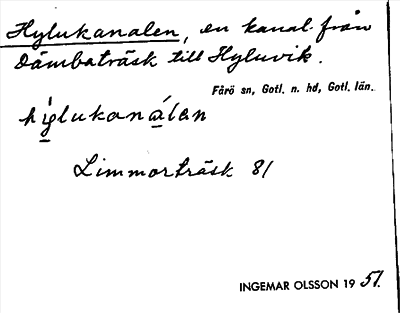 Hylukanalen, en kanal från
Dämbaträsk till Hyluvik.
Fårö sn, Gotl. n. hd, Gotl. län.
hýlukanálen
Limmorträsk 81
INGEMAR OLSSON 19 51.